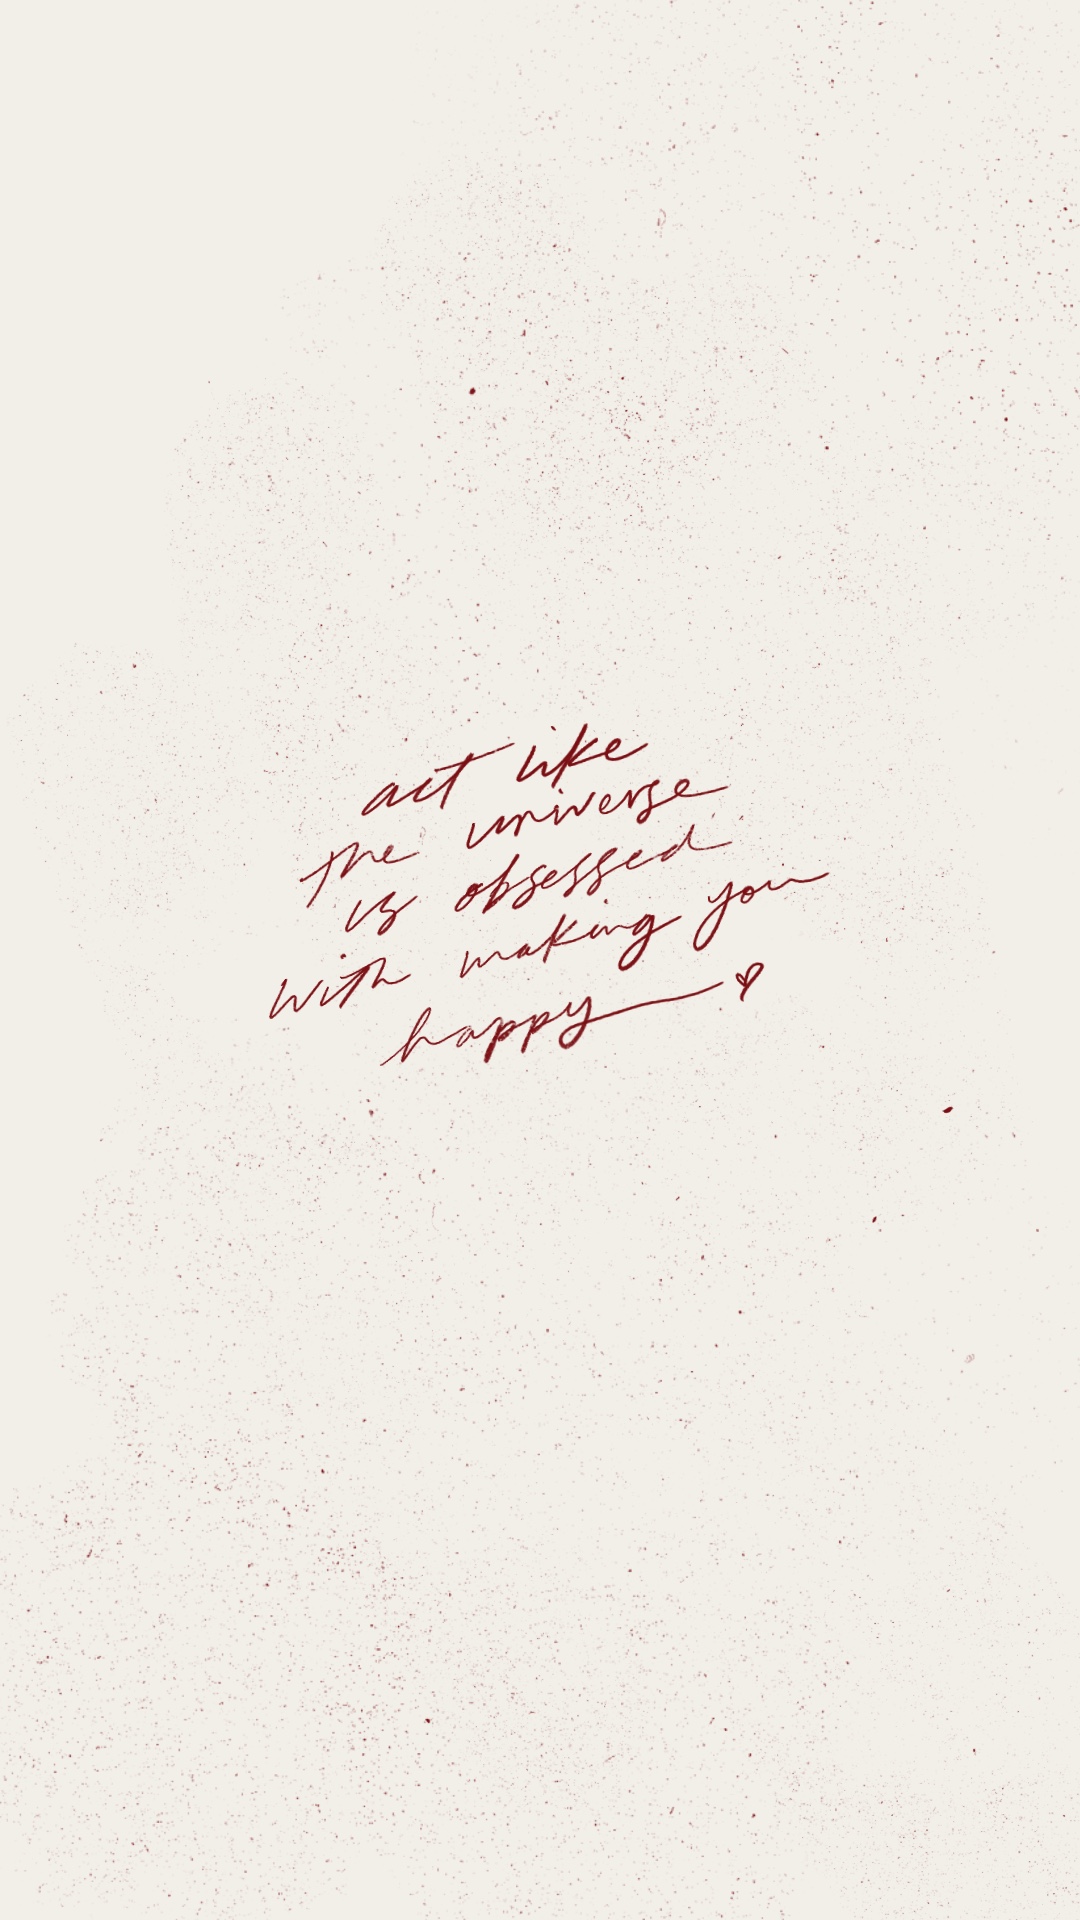 act like
the universe
is obsessed
with making you
happy